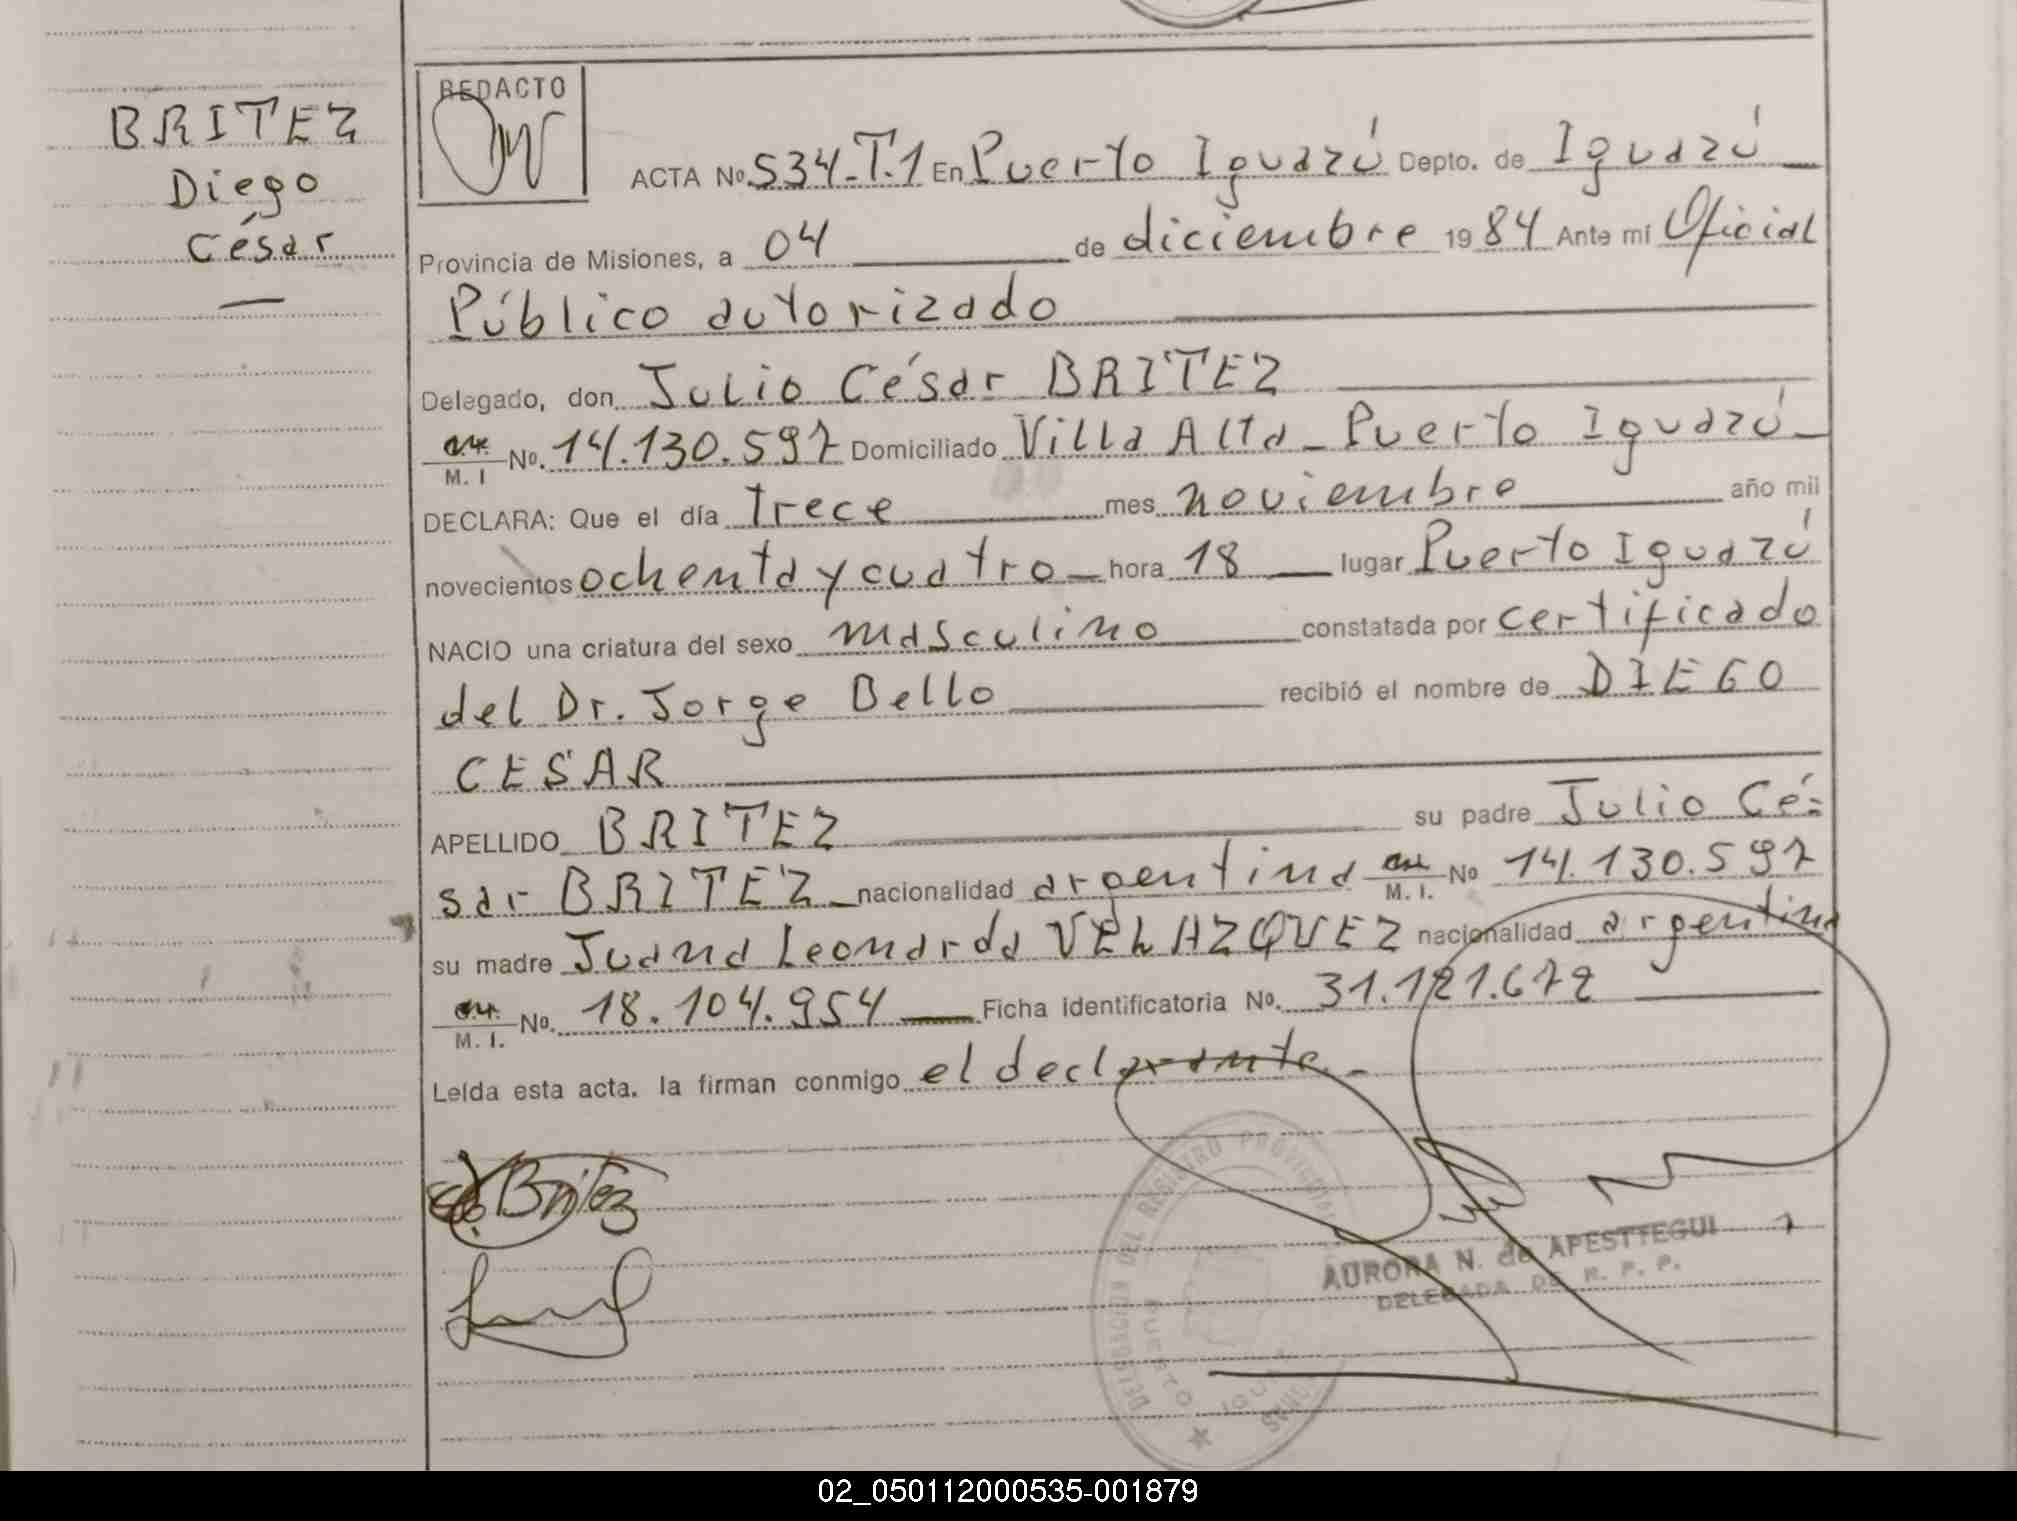 BRITEZ
Diego
César
REDACTO
ACTA Nº 534-T.1 En Puerto Iguazú Depto. de Iguazú
Provincia de Misiones, a 04 de diciembre 1984 Ante mí Oficial
Público autorizado
Delegado, don Julio César BRITEZ
M. I Nº. 14.130.597 Domiciliado Villa Alta - Puerto Iguazú
DECLARA: Que el día trece mes noviembre año mil
novecientos ochenta y cuatro hora 18 lugar Puerto Iguazú
NACIO una criatura del sexo masculino constatada por certificado
del Dr. Jorge Bello recibió el nombre de DIEGO
CESAR
APELLIDO BRITEZ su padre Julio Cé=
sar BRITEZ nacionalidad argentina M. I. Nº 14.130.597
su madre Juana Leonarda VELAZQUEZ nacionalidad argentina
M. I. Nº. 18.104.954 Ficha identificatoria Nº. 31.121.672
Leída esta acta. la firman conmigo el declarante.-
Britez
DELEGACION DEL REGISTRO PROVINCIAL
PUERTO IGUAZU
AURORA N. de APESTTEGUI
DELEGADA DE R. P. P.
02_050112000535-001879